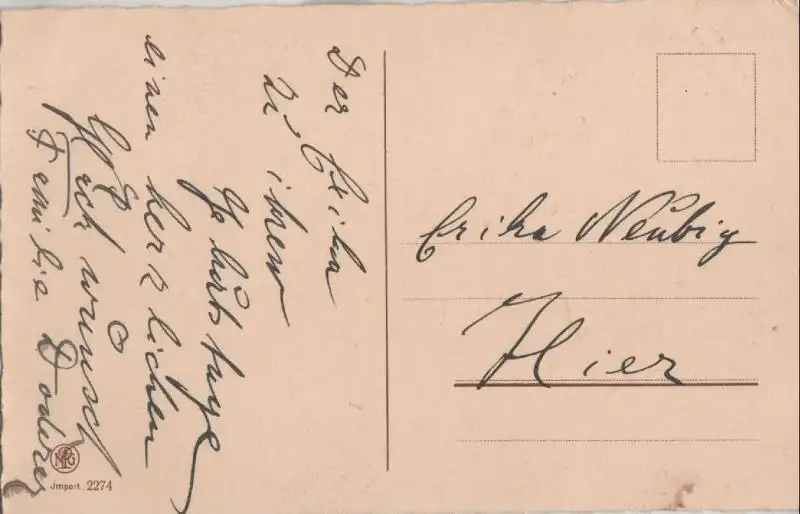 Der Erika
zu ihrem
Geburtstage
einen herzlichen
Glückwunsch
Familie Doderer
Erika Neubig
Hier
NPG
Jmport. 2274